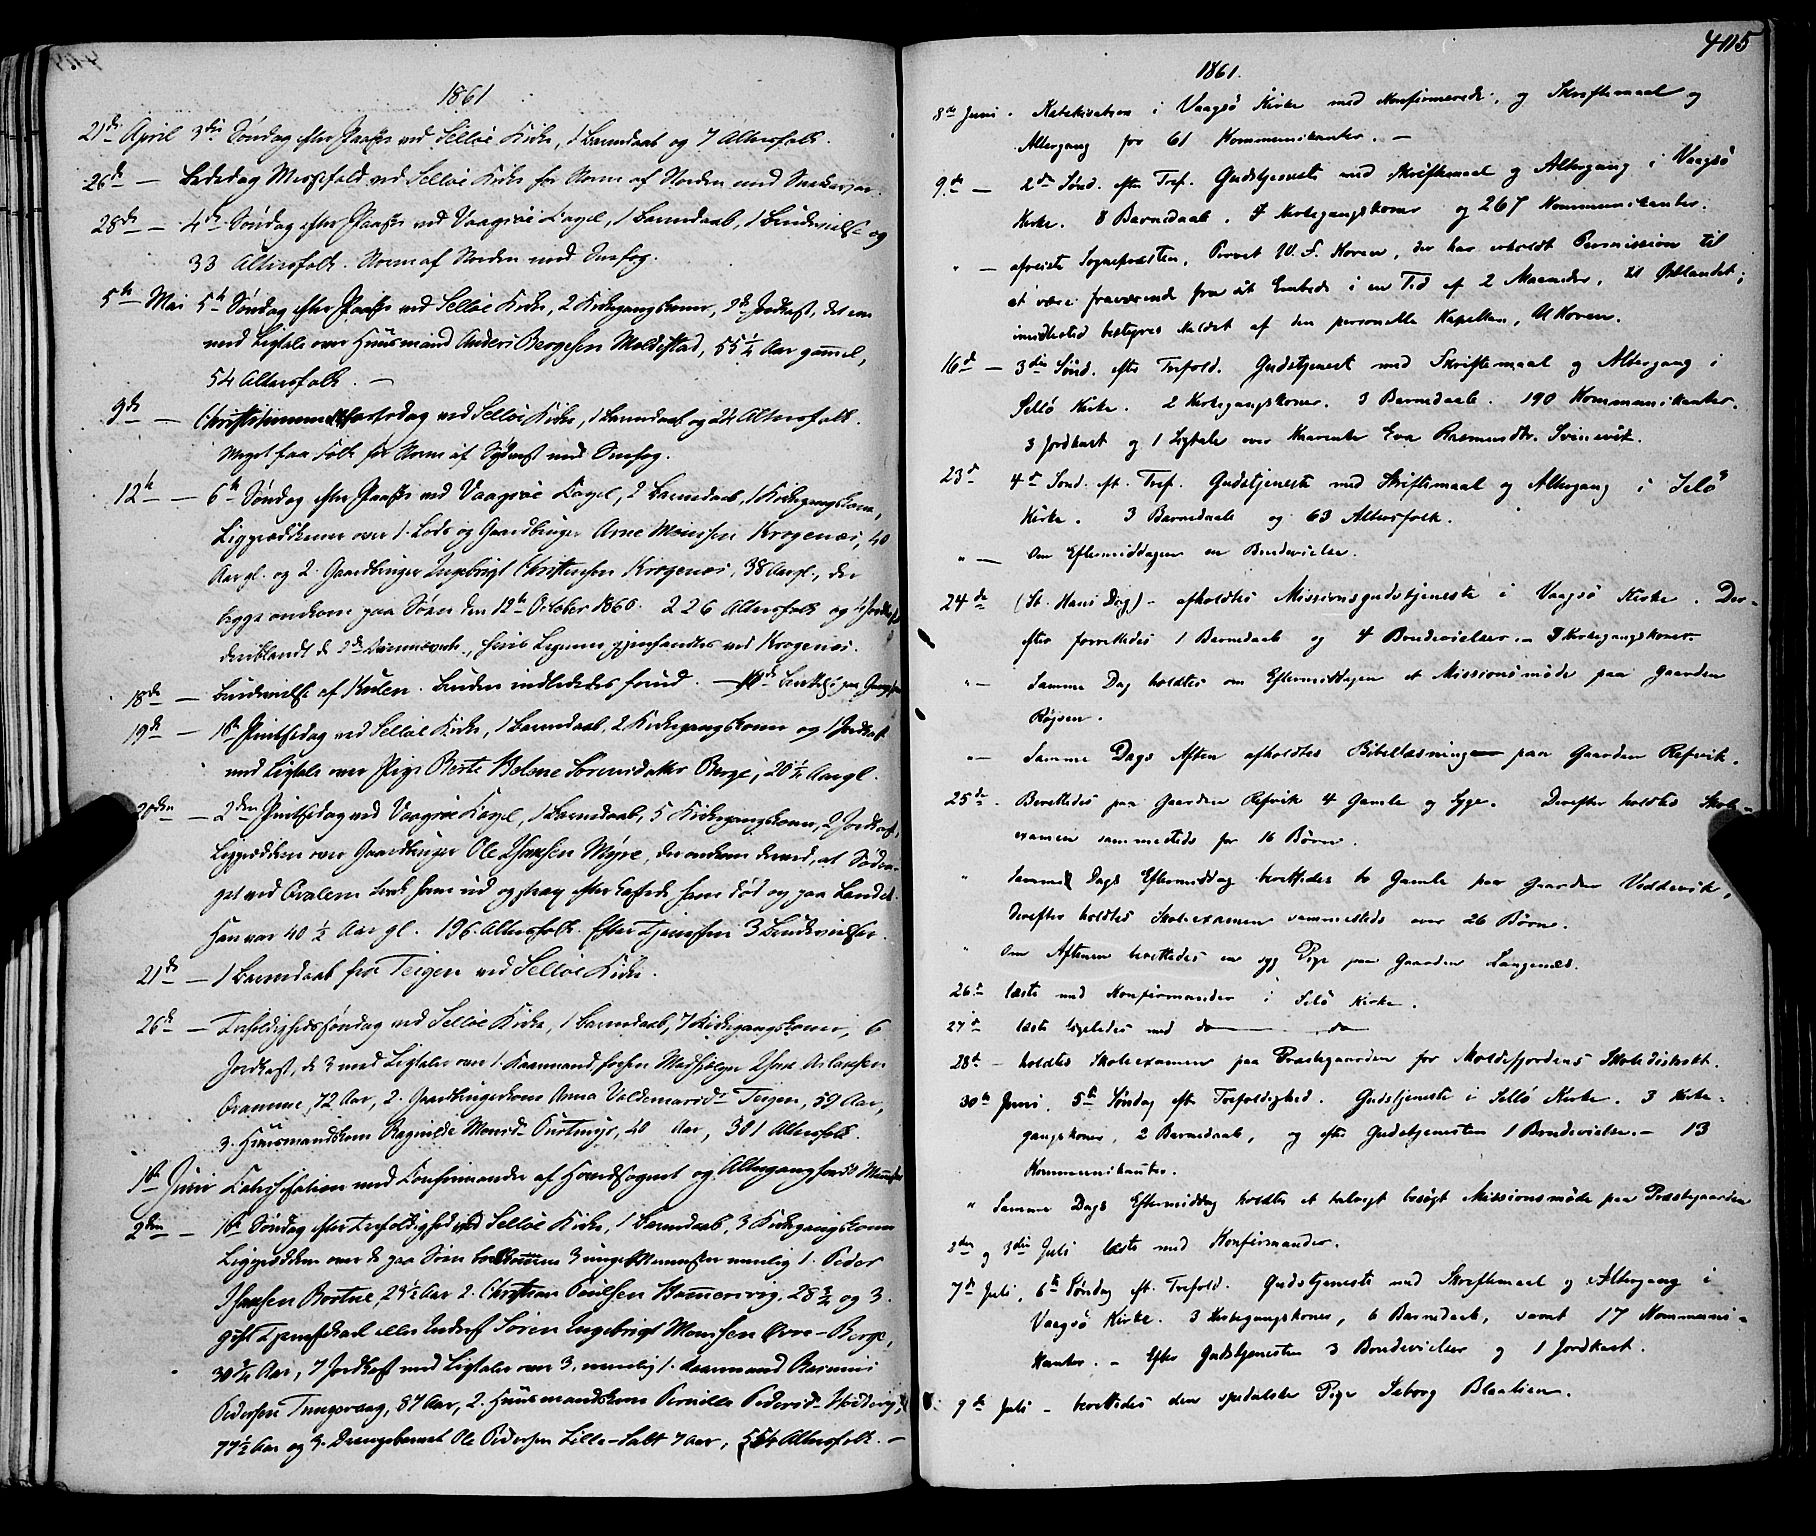 1861
21de April 3die Søndag efter Paaske ved Selløe Kirke, 1 Barnedaab og 7 Altersfolk.
26de — Bededag Messefald ved Selløe Kirke for Storm af Norden med Sneekavger.
28de — 4de Søndag efter Paaske ved Vaagsøe Capel, 1 Barnedaab, 1 Brudevielse og
33 Altersfolk. Storm af Norden med Sneefog.
5te Mai 5te Søndag efter Paaske ved Selløe Kirke, 2 Kirkegangskoner, 2de Jordkast, det ene
med Ligtale over Huusmand Anders Børgesen Moldestad, 55 1/2 Aar gammel,
54 Altersfolk. —
9de — Christi himmelfartsdag ved Selløe Kirke, 1 Barnedaab og 24 Altersfolk.
Meget faa Folk for Storm af Sydvest med Sneefog.
12te — 6te Søndag efter Paaske ved Vaagsøe Capel, 2 Barnedaab, 1 Kirkegangskone,
Ligprædikener over 1. Lods og Gaardbruger Arne Monssen Krogenæs, 40
Aar gl. og 2. Gaardbruger Ingebrigt Christensen Krogenæs, 38 Aar gl., der
begge omkom paa Søen den 12te October 1860. 226 Altersfolk og 4 Jordkast
deriblandt de 2de , hvis Ligene gjenfandtes ved Krogenæs.
18de — Brudevielse af Kulen. Bruden indlededes forud. —
19de — 1ste Pintsedag ved Selløe Kirke, 1 Barnedaab, 2 Kirkegangskoner og 1 Jordkast
med Ligtale over Pige Berte Helene Sørensdatter Berge, 20 1/2 Aar gl.
20den — 2den Pintsedag ved Vaagsøe Capel, 1 Barnedaab, 5 Kirkegangskoner, 2 Jordkast,
Ligprædiken over Gaardbruger Ole Hansen Myre, der omkom derved, at
ved Hvalen trak ham ud og strax efter kastede ham død op paa Landet.
Han var 40 1/2 Aar gl. 196 Altersfolk. Efter Tjenesten 3 Brudevielser.
21de — 1 Barnedaab fra Teigen ved Selløe Kirke.
26de — Trefoldighedssøndag ved Selløe Kirke, 1 Barnedaab, 7 Kirkegangskoner, 6
Jordkast, de 3 med Ligtaler over 1. Kaarmand, forhen Medhjelper
72 Aar, 2. Gaardbrugerkone Anna Valdemarsd. Teigen, 59 Aar,
3. Huusmandskone Ragnilde Monsd. 40 Aar, 301 Altersfolk.
1ste Juni Catechisation med Confirmander af Hovedsognet og Altergang
2den — 1ste Søndag efter Trefoldighed ved Selløe Kirke, 1 Barnedaab, 3 Kirkegangskoner
Ligprædiken over de paa Søen 3 unge Mennesker nemlig 1. Peder
Hansen Bortne, 2. Christian Paulsen Hammersvig, 28 3/4 og 3.
gift Tjenestekarl eller Inderst Søren Ingebrigt Monssen Øvre-Berge,
30 3/4 Aar, 7 Jordkast med Ligtaler over 3, nemlig 1. Kaarmand Rasmus
Pedersen Tungevaag, 87 Aar, 2. Huusmandskone Pernille Pedersd.
77 1/2 Aar og 3. Drengebarnet Ole Pedersen Lille-Salt 7 Aar, 554 Altersfolk. —
405
1861.
8de Juni. Katekisation i Vaagsö Kirke med Konfirmerede, og Skriftemaal og
Altergang for 61 Kommunikanter. —
9de — 2den Sönd. efter Tref. Gudstjeneste med Skriftemaal og Altergang i Vaagsö
Kirke. 8 Barnedaab. 7 Kirkegangskoner og 267 Kommunikanter.
" — afreiste Sognepræsten, Provst W. F. Koren, der har erholdt Permission til
at være fraværende fra sit Embede i en Tid af 2 Maaneder, til Østlandet;
imidlertid bestyres Kaldet af den personelle Kapellan, U. Koren.
16de — 3die Sönd. efter Trefold. Gudstjeneste med Skriftemaal og Altergang i
Sellö Kirke. 2 Kirkegangskoner. 3 Barnedaab. 190 Kommunikanter.
3 Jordkast og 1 Ligtale over Kaarenke Eva Rasmusdtr. Svinevik.
23de 4de Sönd. eft. Tref. Gudstjeneste med Skriftemaal og Altergang i Selö
Kirke. 3 Barnedaab og 63 Altersfolk.
" — Om Eftermiddagen en Brudevielse.
24de (St. Hans Dag) — afholdtes Missionsgudstjeneste i Vaagsö Kirke. Der-
efter forrettedes 1 Barnedaab og 4 Brudevielser. — 3 Kirkegangskoner
" — Samme Dag holdtes om Eftermiddagen et Missionsmöde paa Gaarden
Röjsen.
" — Samme Dags Aften afholdtes Bibellæsning paa Gaarden Refvik.
25de. Berettedes paa Gaarden Refvik 4 Gamle og Syge. Derefter holdtes Skole-
examen sammesteds for 16 Börn.
" Samme Dags Eftermiddag berettedes to Gamle paa Gaarden Vedvik,
derefter holdtes Skoleexamen sammesteds over 26 Börn.
" Om Aftenen berettedes en syg Pige paa Gaarden Langenæs.
26de læste med Konfirmander i Selö Kirke.
27de læste ligeledes med do — do
28de — holdtes Skoleexamen paa Præstegaarden for Moldefjordens Skoledistrikt.
30te Juni. 5te Söndag eft. Trefoldighed. Gudstjeneste i Sellö Kirke. 3 Kirke-
gangskoner, 2 Barnedaab, og efter Gudstjenesten 1 Brudevielse. — 13
Kommunikanter.
" Samme Dags Eftermiddag holdtes et talrigt besögt Missionsmöde paa Præstegaarden
2den og 3die Juli læste med Konfirmander.
7de Juli. 6te Söndag eft. Trefold. Gudstjeneste med Skriftemaal og Altergang i
Vaagsö Kirke. 3 Kirkegangskoner, 6 Barnedaab, samt 17 Kommuni-
kanter. — Efter Gudstjenesten 3 Brudevielser og 1 Jordkast.
9de Juli — berettedes den spedalske Pige Seborg Blaalien.